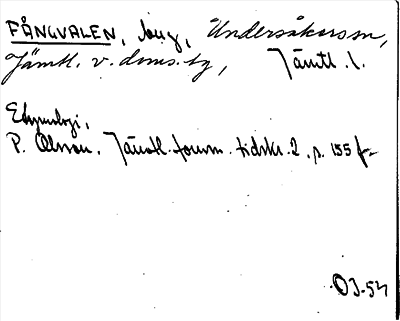 FÅNGVALEN, berg, Undersåkers sn,
Jämtl. v. doms. tg, Jämtl. l.
Etymologi,
P. Olsson. Jämtl. fornm. tidskr. 2, p. 155 f.
OJ-54